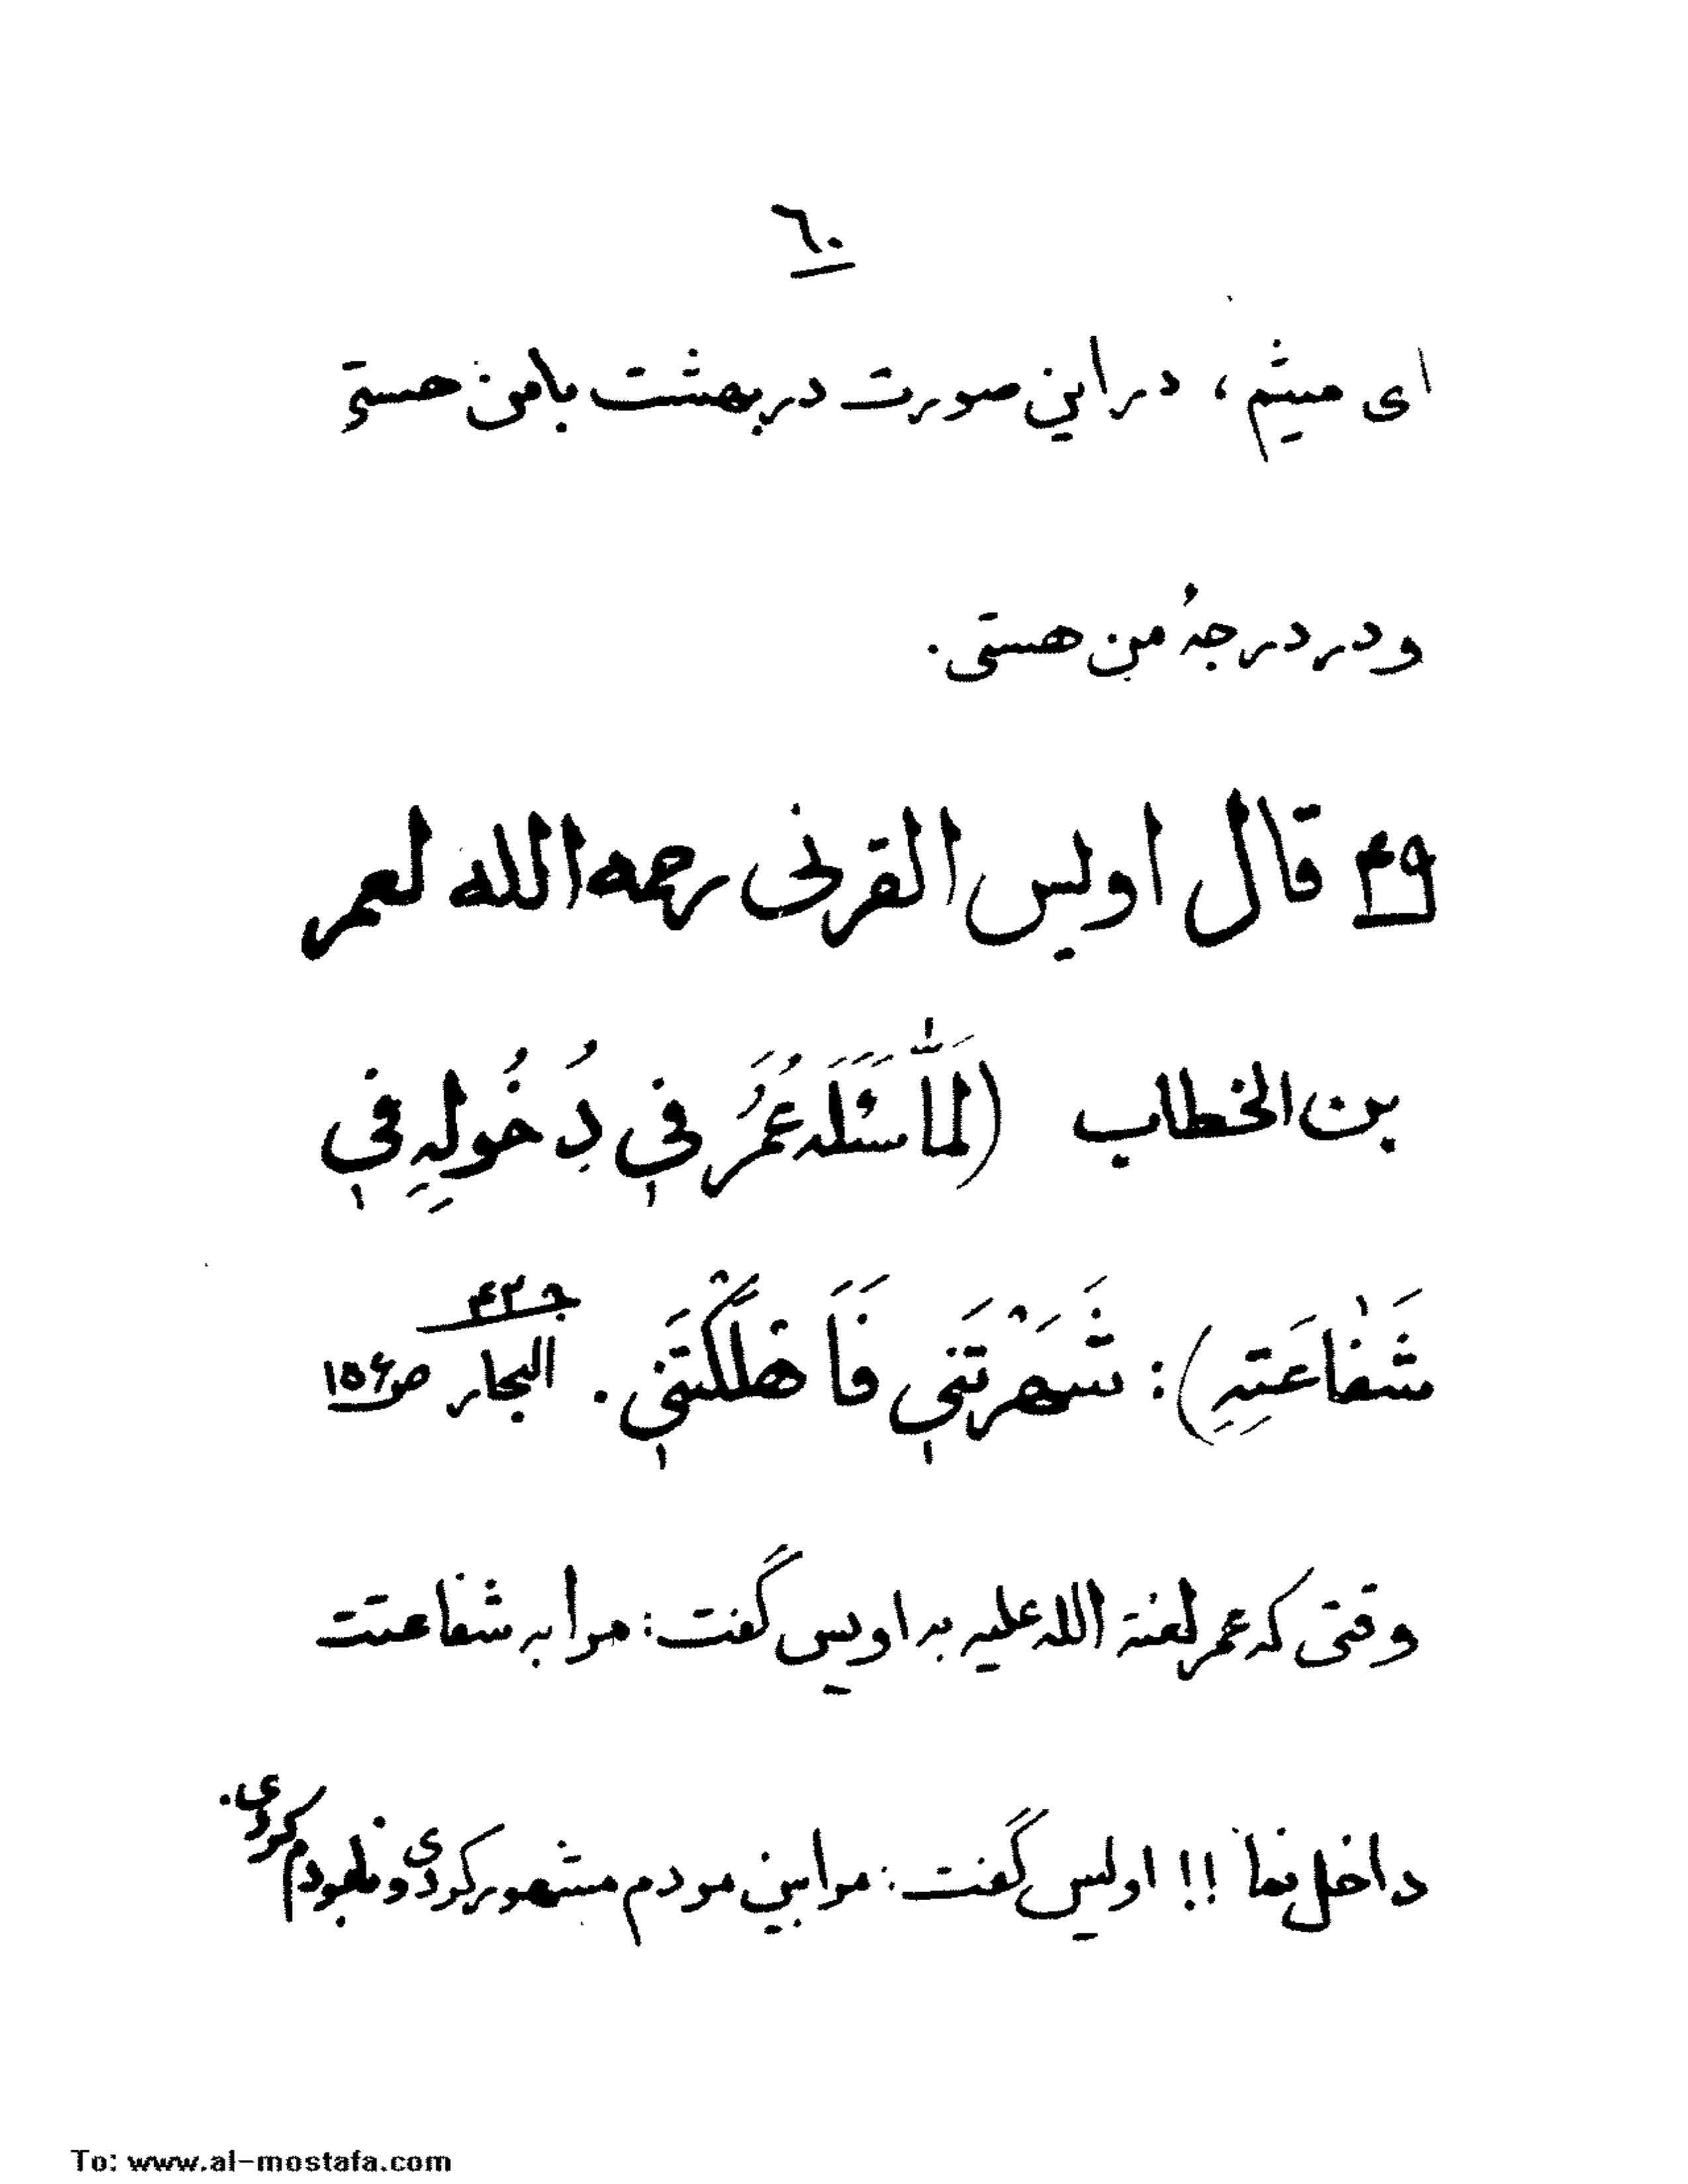 ٦٠
ای میثم، در این صورت در بهشت با من هستی
و در درجهٔ من هستی.
٤٩ قال اویس القرنی رحمه الله لعمر
بن الخطاب (لَمّٰا سَئَلَهُ عُمَرُ في دُخُولِهِ في
شَفٰاعَتِهِ): شَهَرْتَني فَأَهْلَكْتَني. البحار ج ٤٢ ص ١٥٦
وقتی که عمر لعنة الله علیه به اویس گفت: مرا به شفاعتت
داخل نما !! اویس گفت: مرا بین مردم مشهور کردی و نابودم کردی.
To: www.al-mostafa.com